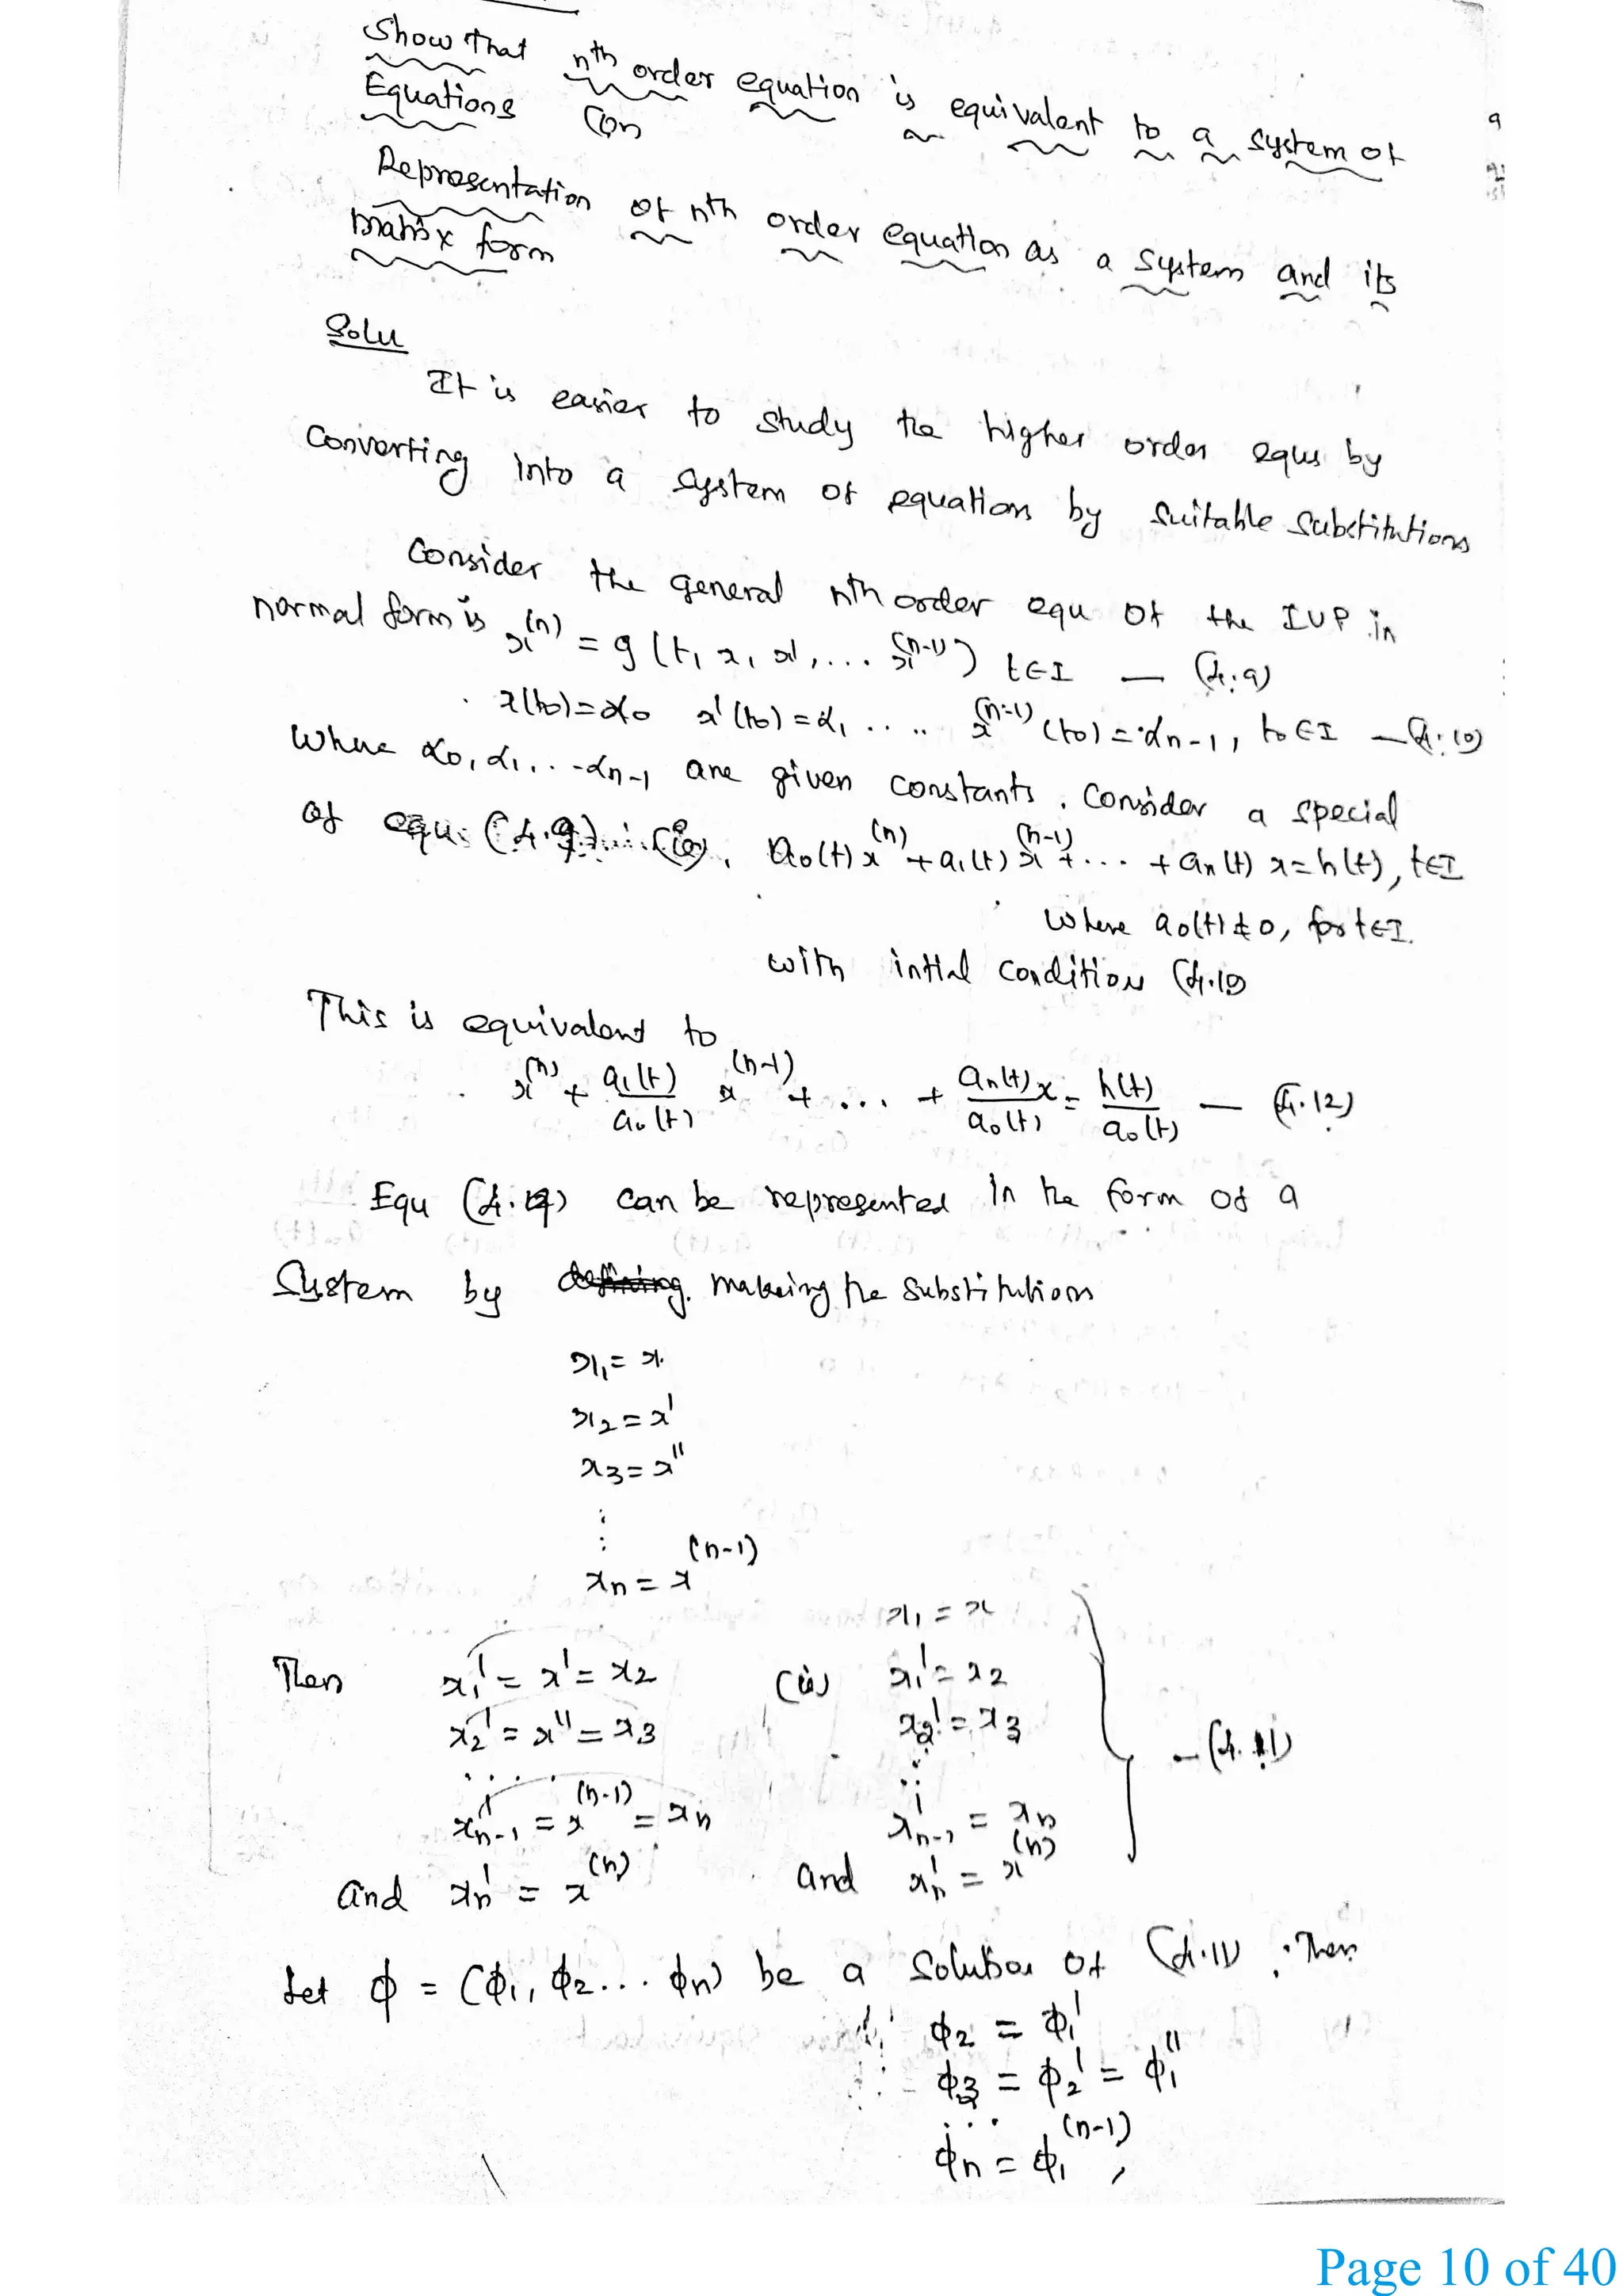 Show that nth order equation is equivalent to a system of
Equations (or)
Representation of nth order equation as a system and its
matrix form
Solu
It is easier to study the higher order equs by
Converting into a system of equations by suitable substitutions
Consider the general nth order equ of the IVP in
normal form is x^(n) = g(t, x, x', ... x^(n-1)) t∈I — (4.9)
x(t0)=α0 x'(t0)=α1 ..... x^(n-1)(t0)=αn-1, t0∈I — (4.10)
Where α0, α1, ... αn-1 are given constants. Consider a special
of equ. (4.9) (ie), a0(t)x^(n) + a1(t)x^(n-1) + ... + an(t) x = h(t), t∈I
where a0(t)≠0, for t∈I.
with intial condition (4.10)
This is equivalent to
x^(n) + a1(t)/a0(t) x^(n-1) + ... + an(t)x/a0(t) = h(t)/a0(t) — (4.12)
Equ (4.9) can be represented in the form of a
System by making the substitutions
x1 = x
x2 = x'
x3 = x''
⋮
xn = x^(n-1)
x1 = x
Then x1' = x' = x2 (ie) x1' = x2
x2' = x'' = x3 x2' = x3
..... ⋮
x'n-1 = x^(n-1) = xn x'n-1 = xn
and xn' = x^(n) and xn' = x^(n)
— (4.11)
Let ϕ = (ϕ1, ϕ2 ... ϕn) be a solution of (4.11). Then
ϕ2 = ϕ1'
ϕ3 = ϕ2' = ϕ1''
...
ϕn = ϕ1^(n-1),
Page 10 of 40